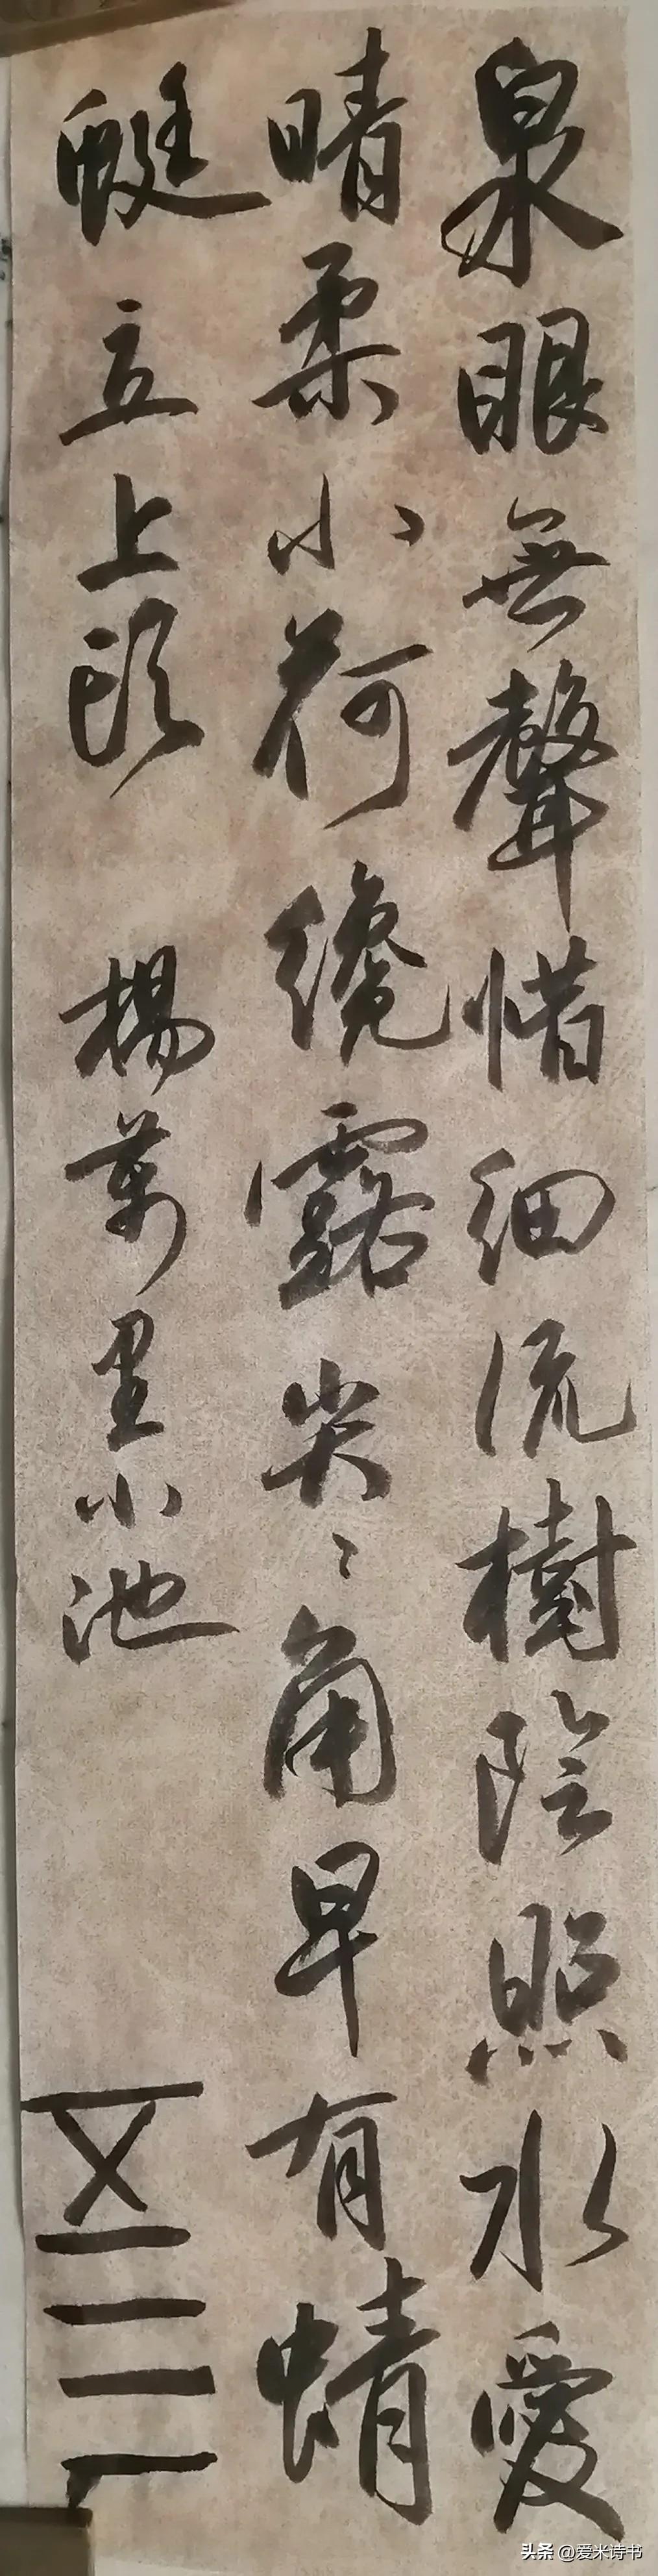 泉眼無聲惜細流樹陰照水愛
晴柔小荷纔露尖〻角早有蜻
蜓立上頭 楊萬里小池
头条 @爱米诗书